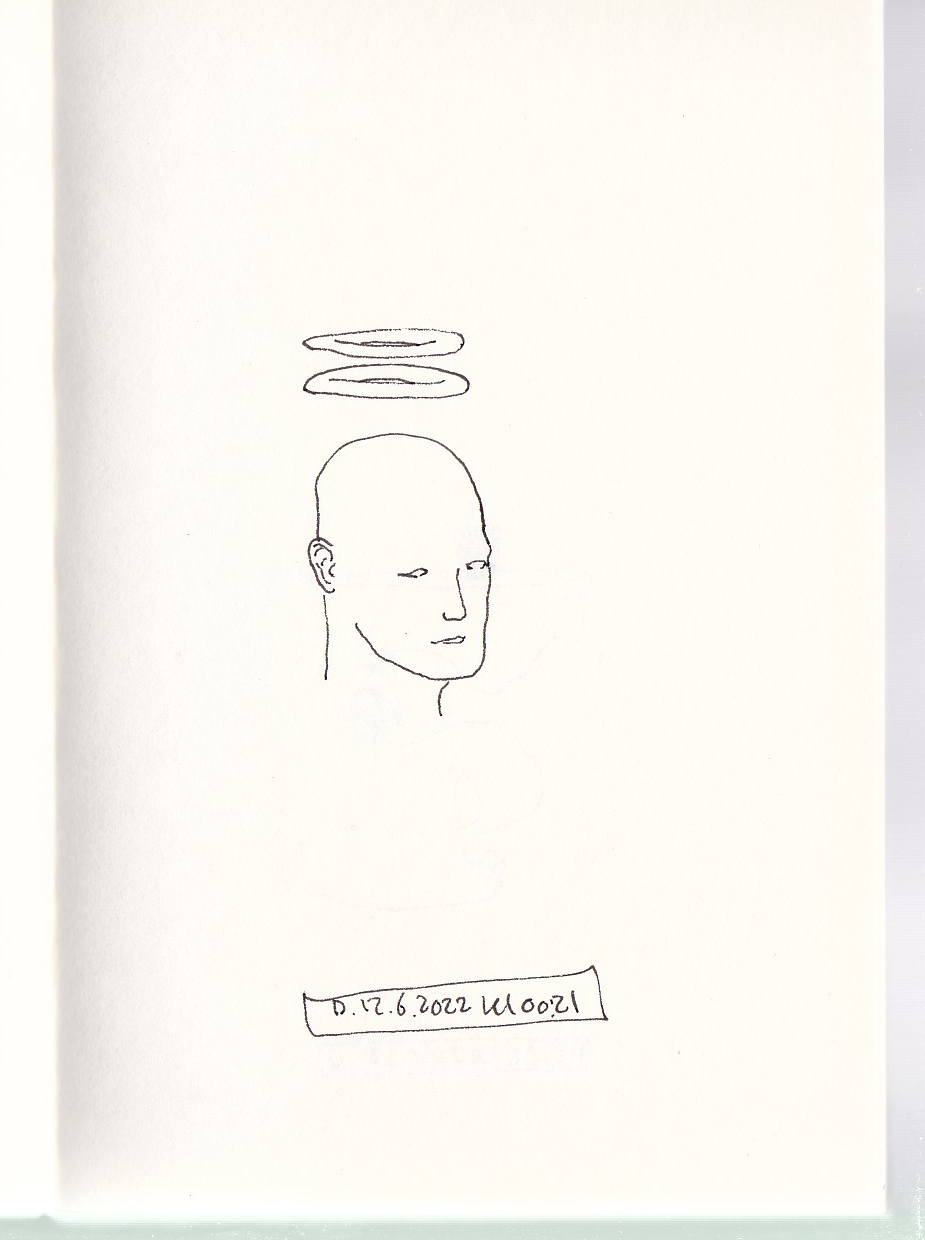 D. 12.6.2022 kl 00:21